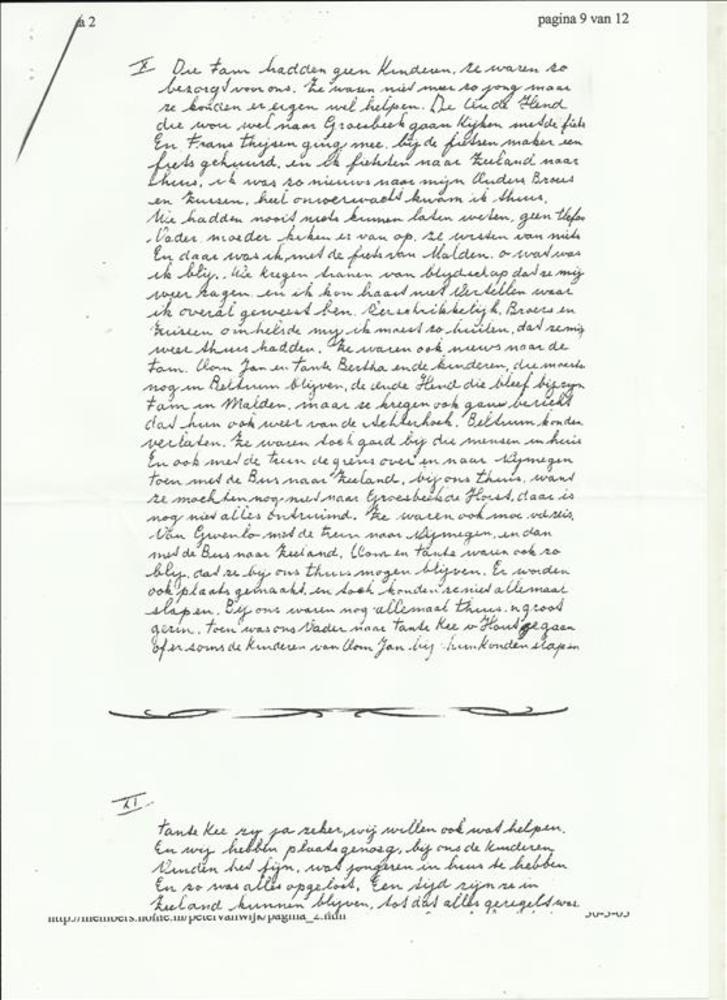 a 2
pagina 9 van 12
X Die Fam hadden geen Kinderen, ze waren zo
bezorgd voor ons. Ze waren niet meer zo jong maar
ze konden er eigen wel helpen. De Oude Hend
die wou wel naar Groesbeek gaan Kijken met de fiets
En Frans Thijsen ging mee. bij de fietsen maker een
fiets gehuurd, en ik fietsten naar Zeeland naar
thuis, ik was zo nieuws naar mijn Ouders Broers
en Zussen, heel onverwacht kwam ik thuis.
We hadden nooit niets kunnen laten weten, geen
Vader moeder keken er van op. ze wisten van niets
En daar was ik, met de fiets van Malden. o wat was
ik blij. We kregen tranen van blijdschap dat ze mij
weer zagen. en ik kon haast niet Vertellen waar
ik overal geweest ben. Verschrikkelijk, Broers en
Zussen omhelsde mij ik moest zo huilen, dat ze mij
weer thuis hadden. Ze waren ook nieuws naar de
Fam. Oom Jan en Tante Bertha en de kinderen, die moesten
nog in Beltrum blijven, de oude Hend die bleef bij zijn
Fam in Malden, maar ze kregen ook gauw bericht
dat hun ook weer van de Achterhoek. Beltrum konden
verlaten. Ze waren toch goed bij die mensen in huis
En ook met de trein de grens over en naar Nijmegen
toen met de Bus naar Zeeland, bij ons thuis, want
ze mochten nog niet naar Groesbeek de Horst, daar is
nog niet alles ontruimd. Ze waren ook moe v d reis,
Van Groenlo met de trein naar Nijmegen, en dan
met de Bus naar Zeeland. Oom en tante waren ook zo
blij, dat ze bij ons thuis mogen blijven. Er worden
ook plaats gemaakt, en toch konden ze niet allemaal
slapen. Bij ons waren nog allemaal thuis. n groot
gezin. toen was ons Vader naar Tante Kee v Hout gegaan
of er soms de Kinderen van Oom Jan bij hun konden slapen
XI
Tante Kee zij ja zeker, wij willen ook wat helpen.
En wij hebben plaats genoeg, bij ons de kinderen
Vinden het fijn, wat jongeren in huis te hebben
En zo was alles opgelost, Een tijd zijn ze in
Zeeland kunnen blijven, tot dat alles geregeld was
http://members.home.nl/petervanwijk/pagina_2.htm
30-3-05